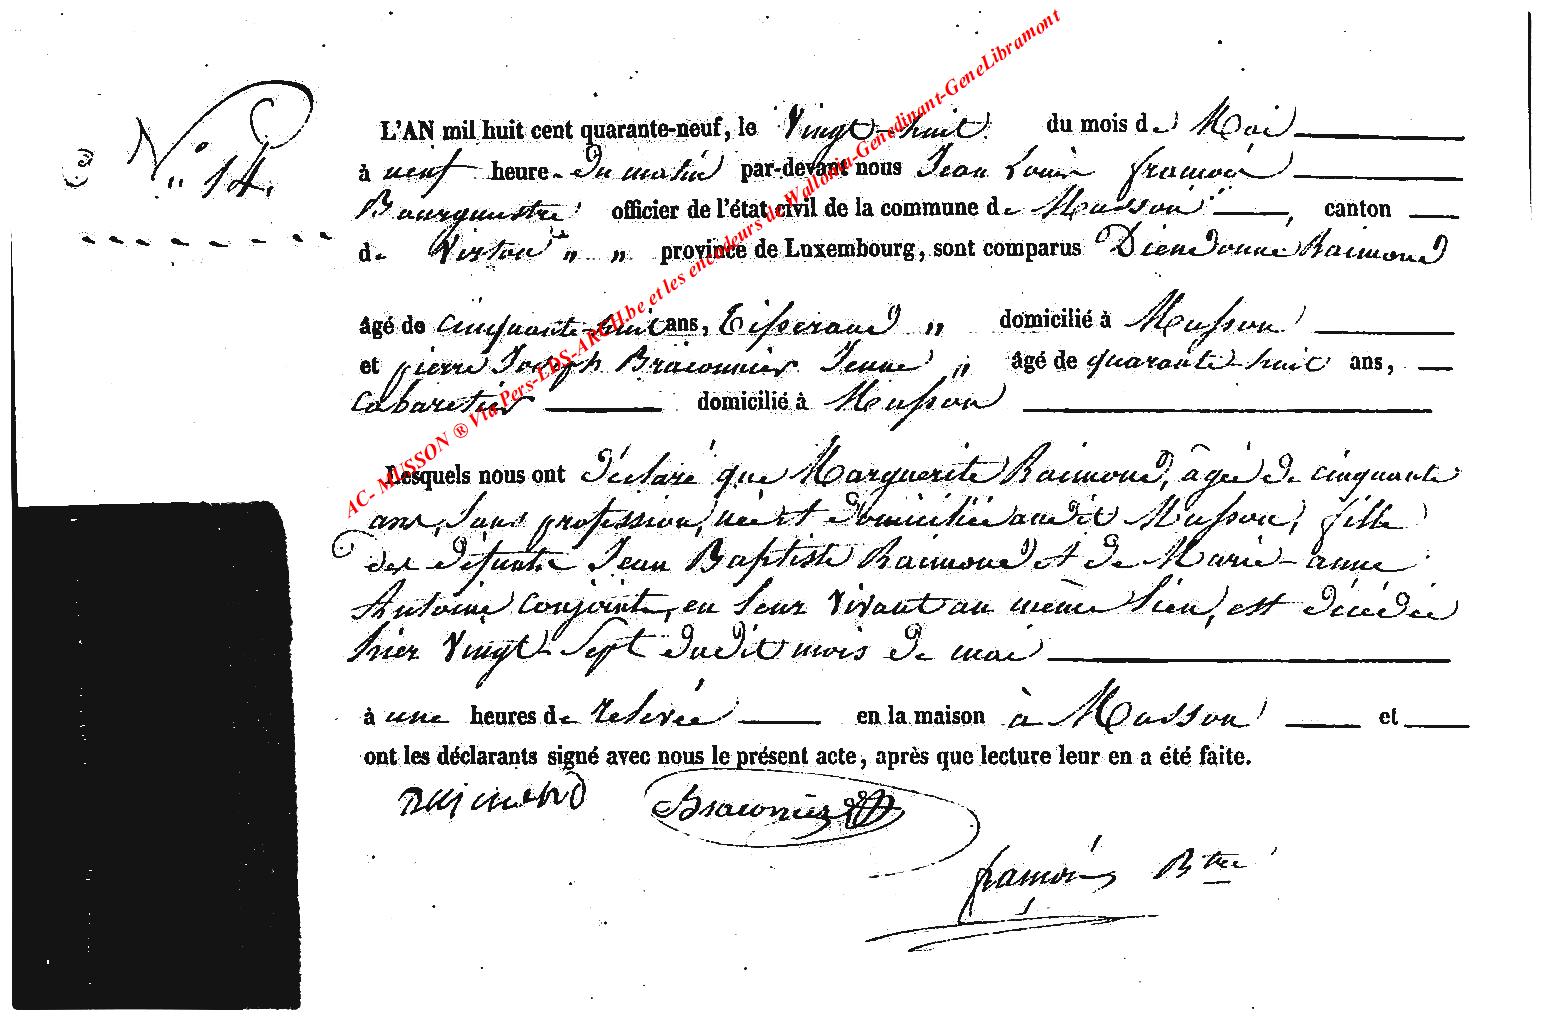 N.° 14.
L'AN mil huit cent quarante-neuf, le Vingt-huit du mois de Mai
à neuf heure du matin par-devant nous Jean Louis françois
Bourgmestre officier de l'état civil de la commune de Musson, canton
de Virton " " province de Luxembourg, sont comparus Dieudonné Raimond
âgé de cinquante-huit ans, Tisserand " domicilié à Musson
et pierre Joseph Braconnier Jeune " âgé de quarante-huit ans,
Cabaretier domicilié à Musson
Lesquels nous ont déclaré que Marguerite Raimond, âgée de cinquante
ans, sans profession, née et domiciliée audit Musson, fille
des défunts Jean Baptiste Raimond et de Marie-anne
Antoine conjoints, en leur vivant au même lieu, est décédée
hier Vingt-Sept dudit mois de mai
à une heures de relevée en la maison à Musson et
ont les déclarants signé avec nous le présent acte, après que lecture leur en a été faite.
raimond Braconnier
françois Btre
AC- MUSSON ® Via Pers-LDS-ARCH.be et les encodeurs de Wallonia-Genedinant-GeneLibramont